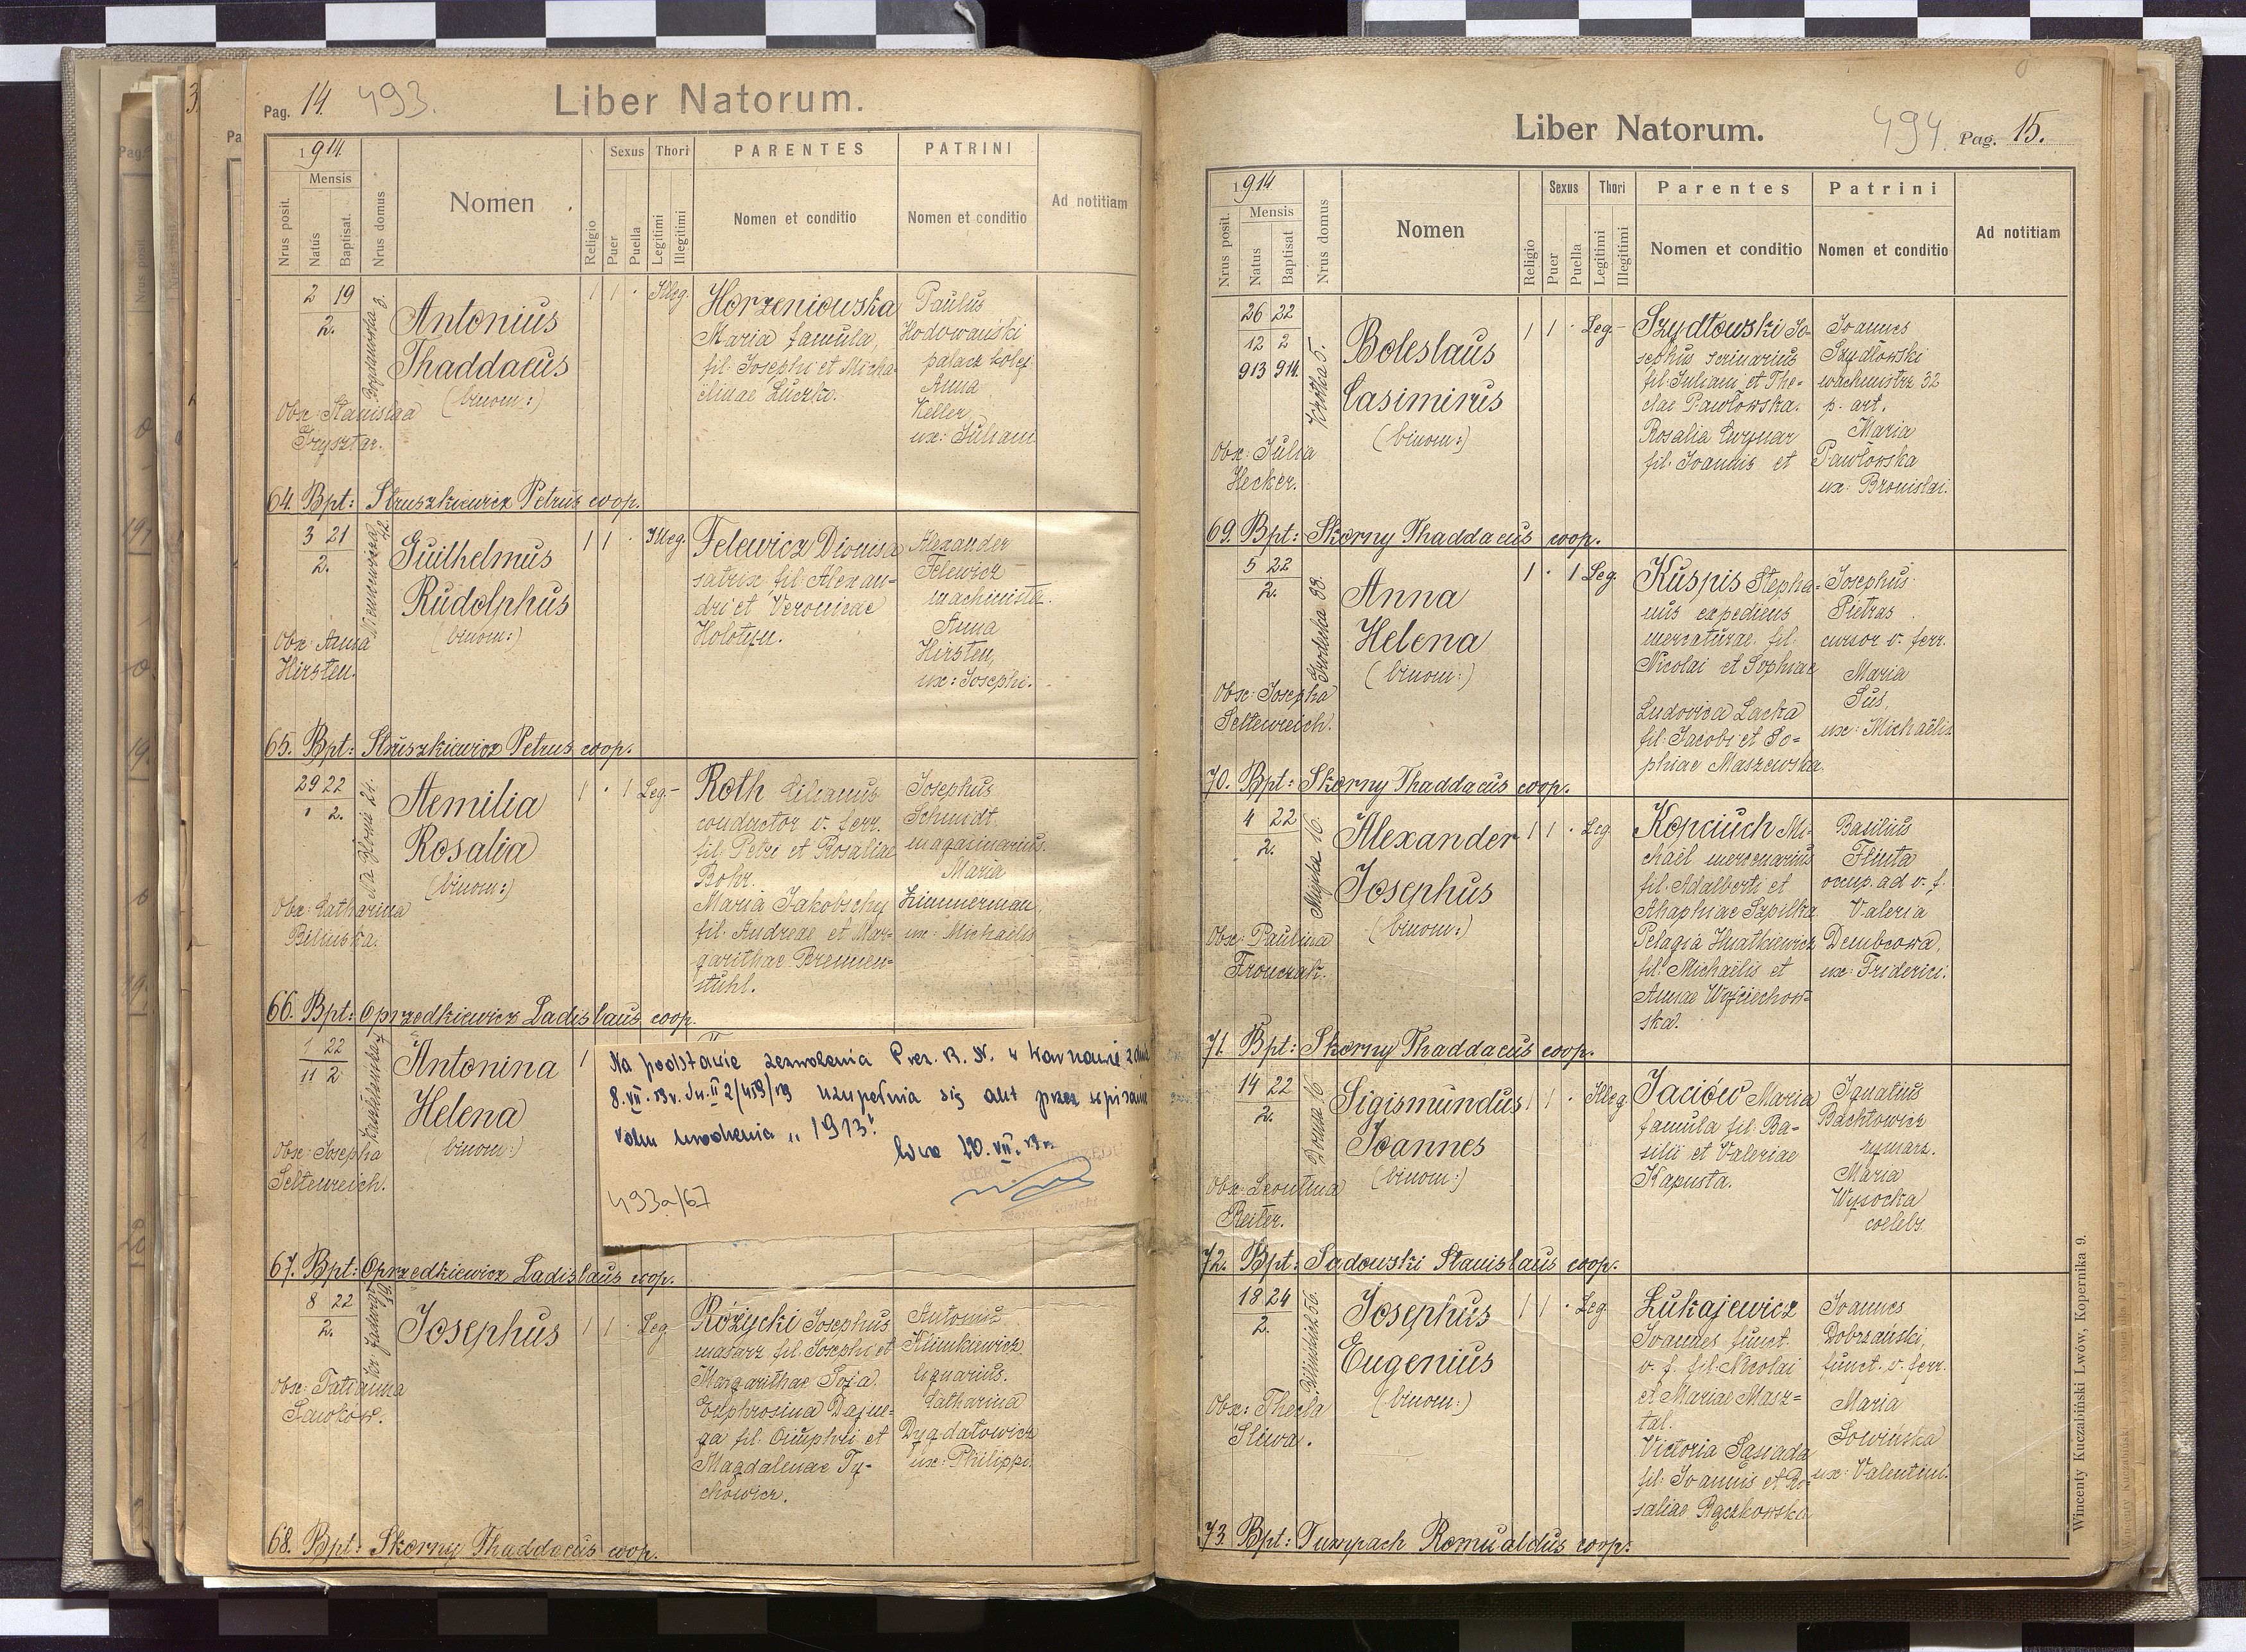 Pag. 14. 493. Liber Natorum.
1914
Mensis
Nrus posit.
Natus
Baptisat.
Nrus domus
Nomen
Religio
Sexus
Puer
Puella
Thori
Legitimi
Illegitimi
PARENTES
Nomen et conditio
PATRINI
Nomen et conditio
Ad notitiam
2 19
2.
Bogdanówka 3.
Antonius
Thaddaeus
(binom:)
Obx: Stanislaa
Trysztar.
1 1 · Illeg.
Horzeniowska
Maria famula,
fil. Josephi et Micha-
elinae Luczko.
Paulus
Hodowański
palacz kolej.
Anna
Keller,
ux: Juliani
64. Bpt: Struszkiewicz Petrus coop.
3 21
2.
42.
Guilhelmus
Rudolphus
(binom:)
Obx: Anna
Hirsten.
1 1 · Illeg.
Felewicz Dionisa
satrix fil. Alexan-
dri et Veronicae
Alexander
Felewicz
machinista.
Anna
Hirsten,
ux: Josephi.
65. Bpt: Struszkiewicz Petrus coop.
29 22
1 2.
Na Błonie 24.
Aemilia
Rosalia
(binom:)
Obx: Catharina
Bilinska.
1 · 1 Leg.-
Roth
conductor v. ferr.
fil. Petri et Rosaliae
Bohr.
Maria Jakobschy
fil. Andreae et Mar-
garithae Bremen-
stuhl.
Josephus
Schmidt
magazinarius.
Maria
Zimmerman,
ux: Michaëlis
66. Bpt: Oprzedkiewicz Ladislaus coop.
1 22
11 2
Antonina
Helena
(binom:)
Obx: Josepha
Seltenreich.
1
Na podstawie zezwolenia Prez. R. N. w
uzupełnia się akt przez wpisanie
roku urodzenia „1913"
493a/67
67. Bpt: Oprzedkiewicz Ladislaus coop.
8 22
2.
Josephus
Obx: Tatianna
Sawków.
1 1 · Leg
Różycki Josephus
masarz fil. Josephi et
Margarithae Soja.
Euphrosina
fil. Onuphri et
Magdalenae Ty-
chowicz.
Antonius
Klimkiewicz
lignarius.
Catharina
Dygdałowicz
ux: Philippi.
68. Bpt: Skorny Thaddaeus coop.
Liber Natorum. 494. Pag. 15.
1914
Mensis
Nrus posit.
Natus
Baptisat
Nrus domus
Nomen
Religio
Sexus
Puer
Puella
Thori
Legitimi
Illegitimi
Parentes
Nomen et conditio
Patrini
Nomen et conditio
Ad notitiam
26 22
12 2
913 914.
Krótka 5.
Boleslaus
Casimirus
(binom:)
Obx: Julia
Hecker.
1 1 · Leg.-
Szydłowski Jo-
sephus scriniarius
fil. Juliani et The-
clae Pawłowska.
Rosalia
fil. Joannis et
Joannes
Szydłowski
wachmistrz 32
p. art.
Maria
Pawłowska
ux: Bronislai.
69. Bpt: Skorny Thaddaeus coop.
5 22
2.
Anna
Helena
(binom:)
Obx: Josepha
Seltenreich.
1 · 1 Leg.
Kuspis Stepha-
nus expediens
mercaturae fil.
Nicolai et Sophiae
Ludovica Lacka
fil. Jacobi et So-
phiae Maszewska.
Josephus
Pietras
cursor v. ferr.
Maria
Sus,
ux: Michaëlis
70. Bpt: Skorny Thaddaeus coop.
4 22
2.
Alexander
Josephus
(binom:)
Obx: Paulina
Fronczak.
1 1 · Leg
Kopciuch Mi-
chaël mercenarius
fil. Adalberti et
Ahaphiae Szpilka
Pelagia Hnatkiewicz
fil. Michaëlis et
Annae Wojciechow-
ska.
Basilius
Flinta
occup. ad v. f.
Valeria
Dembcowa,
ux: Friderici.
71. Bpt: Skorny Thaddaeus coop.
14 22
2.
Sigismundus
Joannes
(binom:)
Obx: Leontina
Reiter.
1 1 · Illeg.
Jaciów Maria
famula fil. Ba-
silii et Valeriae
Kapusta.
Ignatius
Bachtowicz
rymarz.
Maria
Wysocka
coelebs.
72. Bpt: Sadowski Stanislaus coop.
18 24
2.
Josephus
Eugenius
(binom:)
Obx: Thecla
Śliwa.
1 1 · Leg
Łukajewicz
Joannes funct.
v. f. fil. Nicolai
et Mariae Masz-
tal.
Victoria Sąsiada
fil. Joannis et Ro-
saliae Rączkowska
Joannes
Dobrzański,
funct. v. ferr.
Maria
Sowińska
ux: Valentini.
73. Bpt: Turzpach Romualdus coop.
Wincenty Kuczabiński Lwów, Kopernika 9.